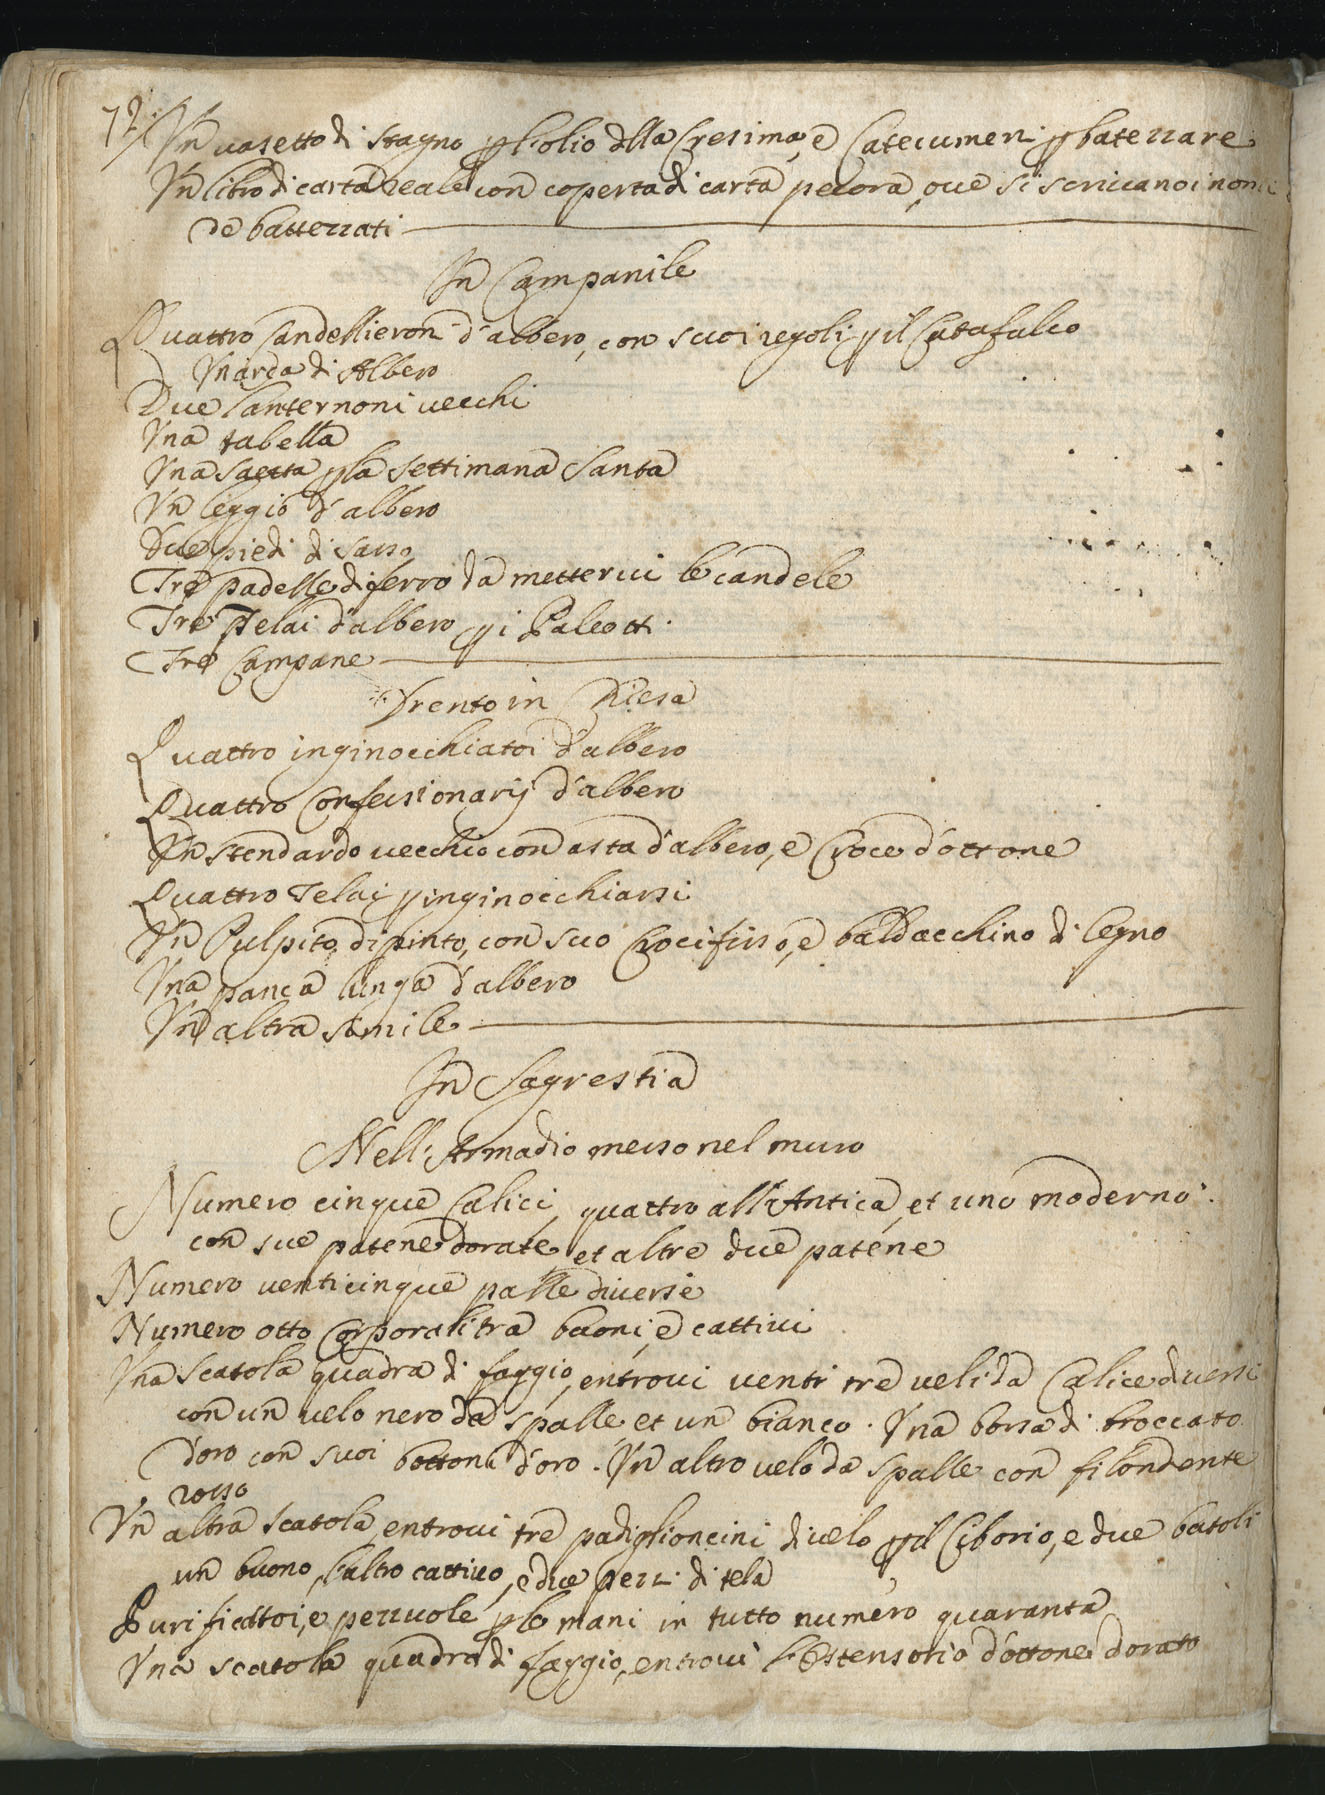 72.
Un vasetto di stagno p l'olio dlla Cresima, e Catecumeni p batezzare
Un libro di carta reale con coperta di carta pecora, ove si scrivano i nomi
de battezzati
In Campanile
Quattro Candellieroni d'albero, con suoi regoli p il Catafalco
Un'arca di Albero
Due Lanternoni vecchi
Una tabella
Una saetta p la settimana Santa
Un leggio d'albero
Due piedi di sasso
Tre padelle di ferro da mettervi le candele
Tre Telai d'albero p i Paleotti
Tre Campane
Drento in Chiesa
Quattro inginocchiatoi d'albero
Quattro Confessionarij d'albero
Un stendardo vecchio con asta d'albero, e Croce d'ottone
Quattro Telai p inginocchiarsi
Un Pulpito dipinto, con suo Crocifisso, e baldacchino di legno
Una panca lunga d'albero
Un altra simile
In Sagrestia
Nell'Armadio messo nel muro
Numero cinque Calici, quattro all'Antica, et uno moderno
con sue patene dorate, et altre due patene
Numero venticinque palle diverse
Numero otto Corporali tra buoni, e cattivi
Una scatola quadra di faggio, entrovi venti tre veli da Calice diversi
con un velo nero da spalle, et un bianco. Una borsa di broccato
d'oro con suoi bottoni d'oro. Un altro velo da spalle con filondente
rosso
Un altra scatola, entrovi tre padiglioncini di velo p il Ciborio, e due batoli
un buono, l'altro cattivo, e due pezzi di tela
Purificatoi, e pezzuole p le mani in tutto numero quaranta
Una scatola quadra di faggio, entrovi l'Ostensorio d'ottone dorato